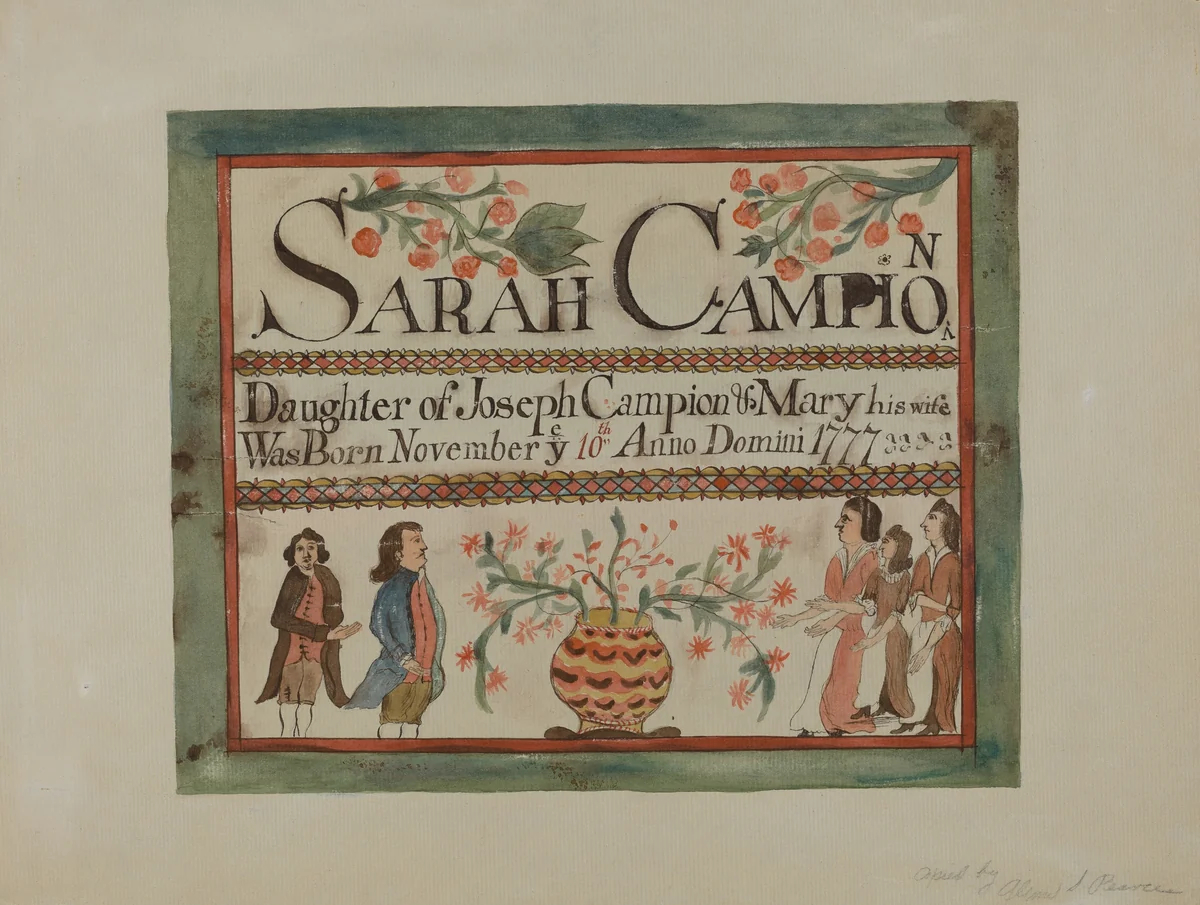 SARAH CAMPION
Daughter of Joseph Campion & Mary his wife
Was Born November yᵉ 10ᵗʰ Anno Domini 1777
copied by Glenn S Pearce